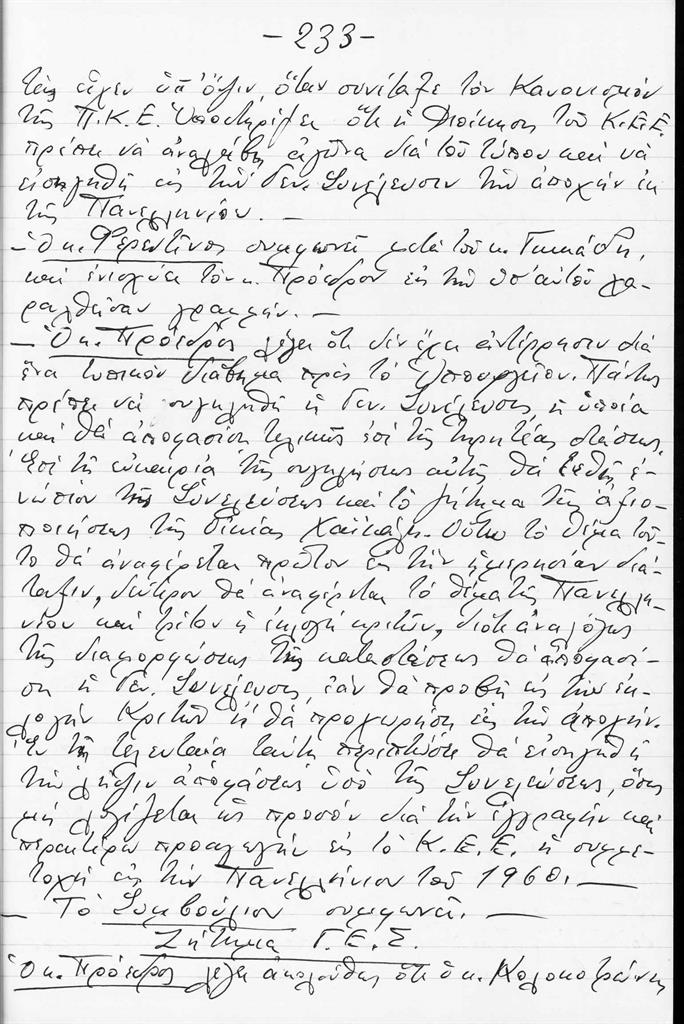 - 233 -
τὰς εἶχεν ὑπ' ὄψιν, ὅταν συνέταξε τὸν Κανονισμὸν
τῆς Π.Κ.Ε. Ὑποστηρίζει ὅτι ἡ Διοίκησις τοῦ Κ.Ε.Ε.
πρέπει νὰ ἀναλάβῃ ἀγῶνα διὰ τοῦ τύπου καὶ νὰ
εἰσηγηθῇ εἰς τὴν Γεν. Συνέλευσιν τὴν ἀποχὴν ἐκ
τῆς Πανελληνίου. —
- Ὁ κ. Φερεντῖνος συμφωνεῖ μετὰ τοῦ κ.
καὶ ἐνισχύει τὸν κ. Πρόεδρον εἰς τὴν ὑπ' αὐτοῦ χα-
ραχθεῖσαν γραμμήν. —
- Ὁ κ. Πρόεδρος λέγει ὅτι δὲν ἔχει ἀντίρρησιν διὰ
ἕνα τυπικὸν διάβημα πρὸς τὸ Ὑπουργεῖον. Πάντως
πρέπει νὰ συγκληθῇ ἡ Γεν. Συνέλευσις, ἡ ὁποία
καὶ θὰ ἀποφασίσῃ τελικῶς ἐπὶ τῆς τηρητέας στάσεως.
Ἐπὶ τῇ εὐκαιρίᾳ τῆς συγκλήσεως αὐτῆς θὰ τεθῇ ἐ-
νώπιον τῆς Συνελεύσεως καὶ τὸ ζήτημα τῆς ἀξιο-
ποιήσεως τῆς οἰκίας Χαϊκάλη. Οὕτω τὸ θέμα τοῦ-
το θὰ ἀναφέρεται πρῶτον εἰς τὴν ἡμερησίαν διά-
ταξιν, δεύτερον θὰ ἀναφέρεται τὸ θέμα τῆς Πανελλη-
νίου καὶ τρίτον ἡ ἐκλογὴ κριτῶν, διότι ἀναλόγως
τῆς διαμορφώσεως τῆς καταστάσεως θὰ ἀποφασί-
σῃ ἡ Γεν. Συνέλευσις, ἐὰν θὰ προβῇ εἰς τὴν ἐκ-
λογὴν Κριτῶν ἢ θὰ προχωρήσῃ εἰς τὴν ἀποχήν.
Ἐν τῇ τελευταίᾳ ταύτῃ περιπτώσει θὰ εἰσηγηθῇ
τὴν λῆψιν ἀποφάσεως ὑπὸ τῆς Συνελεύσεως, ὅπως
μὴ λογίζεται ὡς προσὸν διὰ τὴν ἐγγραφὴν καὶ
περαιτέρω προαγωγὴν εἰς τὸ Κ.Ε.Ε. ἡ συμμε-
τοχὴ εἰς τὴν Πανελλήνιον τοῦ 1960. —
- Τὸ Συμβούλιον συμφωνεῖ. —
Ζήτημα Γ.Ε.Σ.
Ὁ κ. Πρόεδρος λέγει ἀκολούθως ὅτι ὁ κ. Κολοκοτρώνης